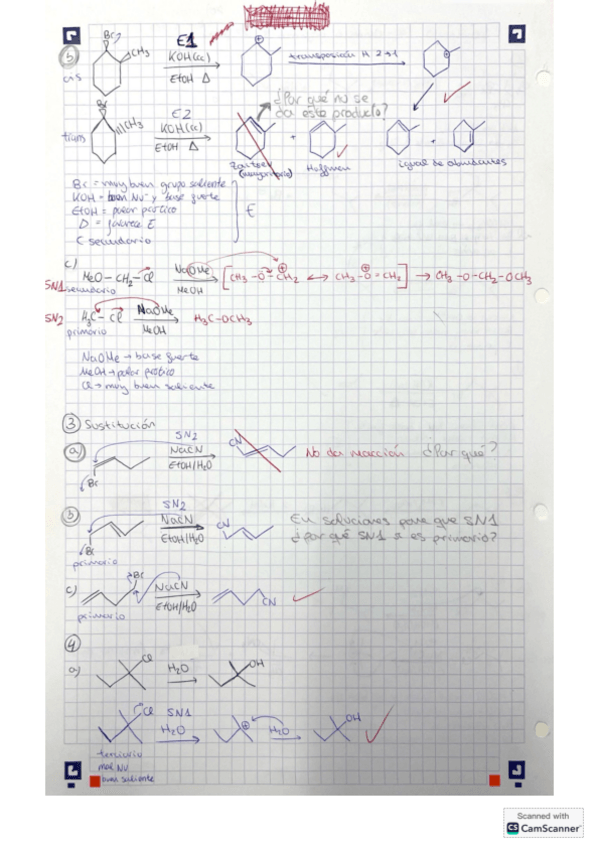 b)
cis
Br
CH3
E1
KOH(cc)
EtOH Δ
⊕
transposición H 2→1
⊕
trans
Br
CH3
E2
KOH(cc)
EtOH Δ
¿Por qué no se
da este producto?
+
+
Zaitsev
(mayoritario)
Hoffman
igual de abundantes
Br = muy buen grupo saliente
KOH = buen Nu⁻ y base fuerte
EtOH = polar prótico
Δ = favorece E
C secundario
E
c)
SN1
MeO – CH2 – Cl
secundario
NaOMe
MeOH
[CH3 – O – CH2 ↔ CH3 – O = CH2] → CH3 – O – CH2 – OCH3
SN2
H3C – Cl
primario
NaOMe
MeOH
H3C – OCH3
NaOMe → base fuerte
MeOH → polar prótico
Cl → muy buen saliente
3 Sustitución
a)
Br
SN2
NaCN
EtOH/H2O
CN
No da reacción ¿Por qué?
b)
Br
primario
SN2
NaCN
EtOH/H2O
CN
En soluciones pone que SN1
¿por qué SN1 si es primario?
c)
Br
primario
NaCN
EtOH/H2O
CN
4
a)
Cl
H2O
OH
Cl
SN1
H2O
⊕
H2O
OH
terciario
mal Nu
buen saliente
Scanned with
CS CamScanner